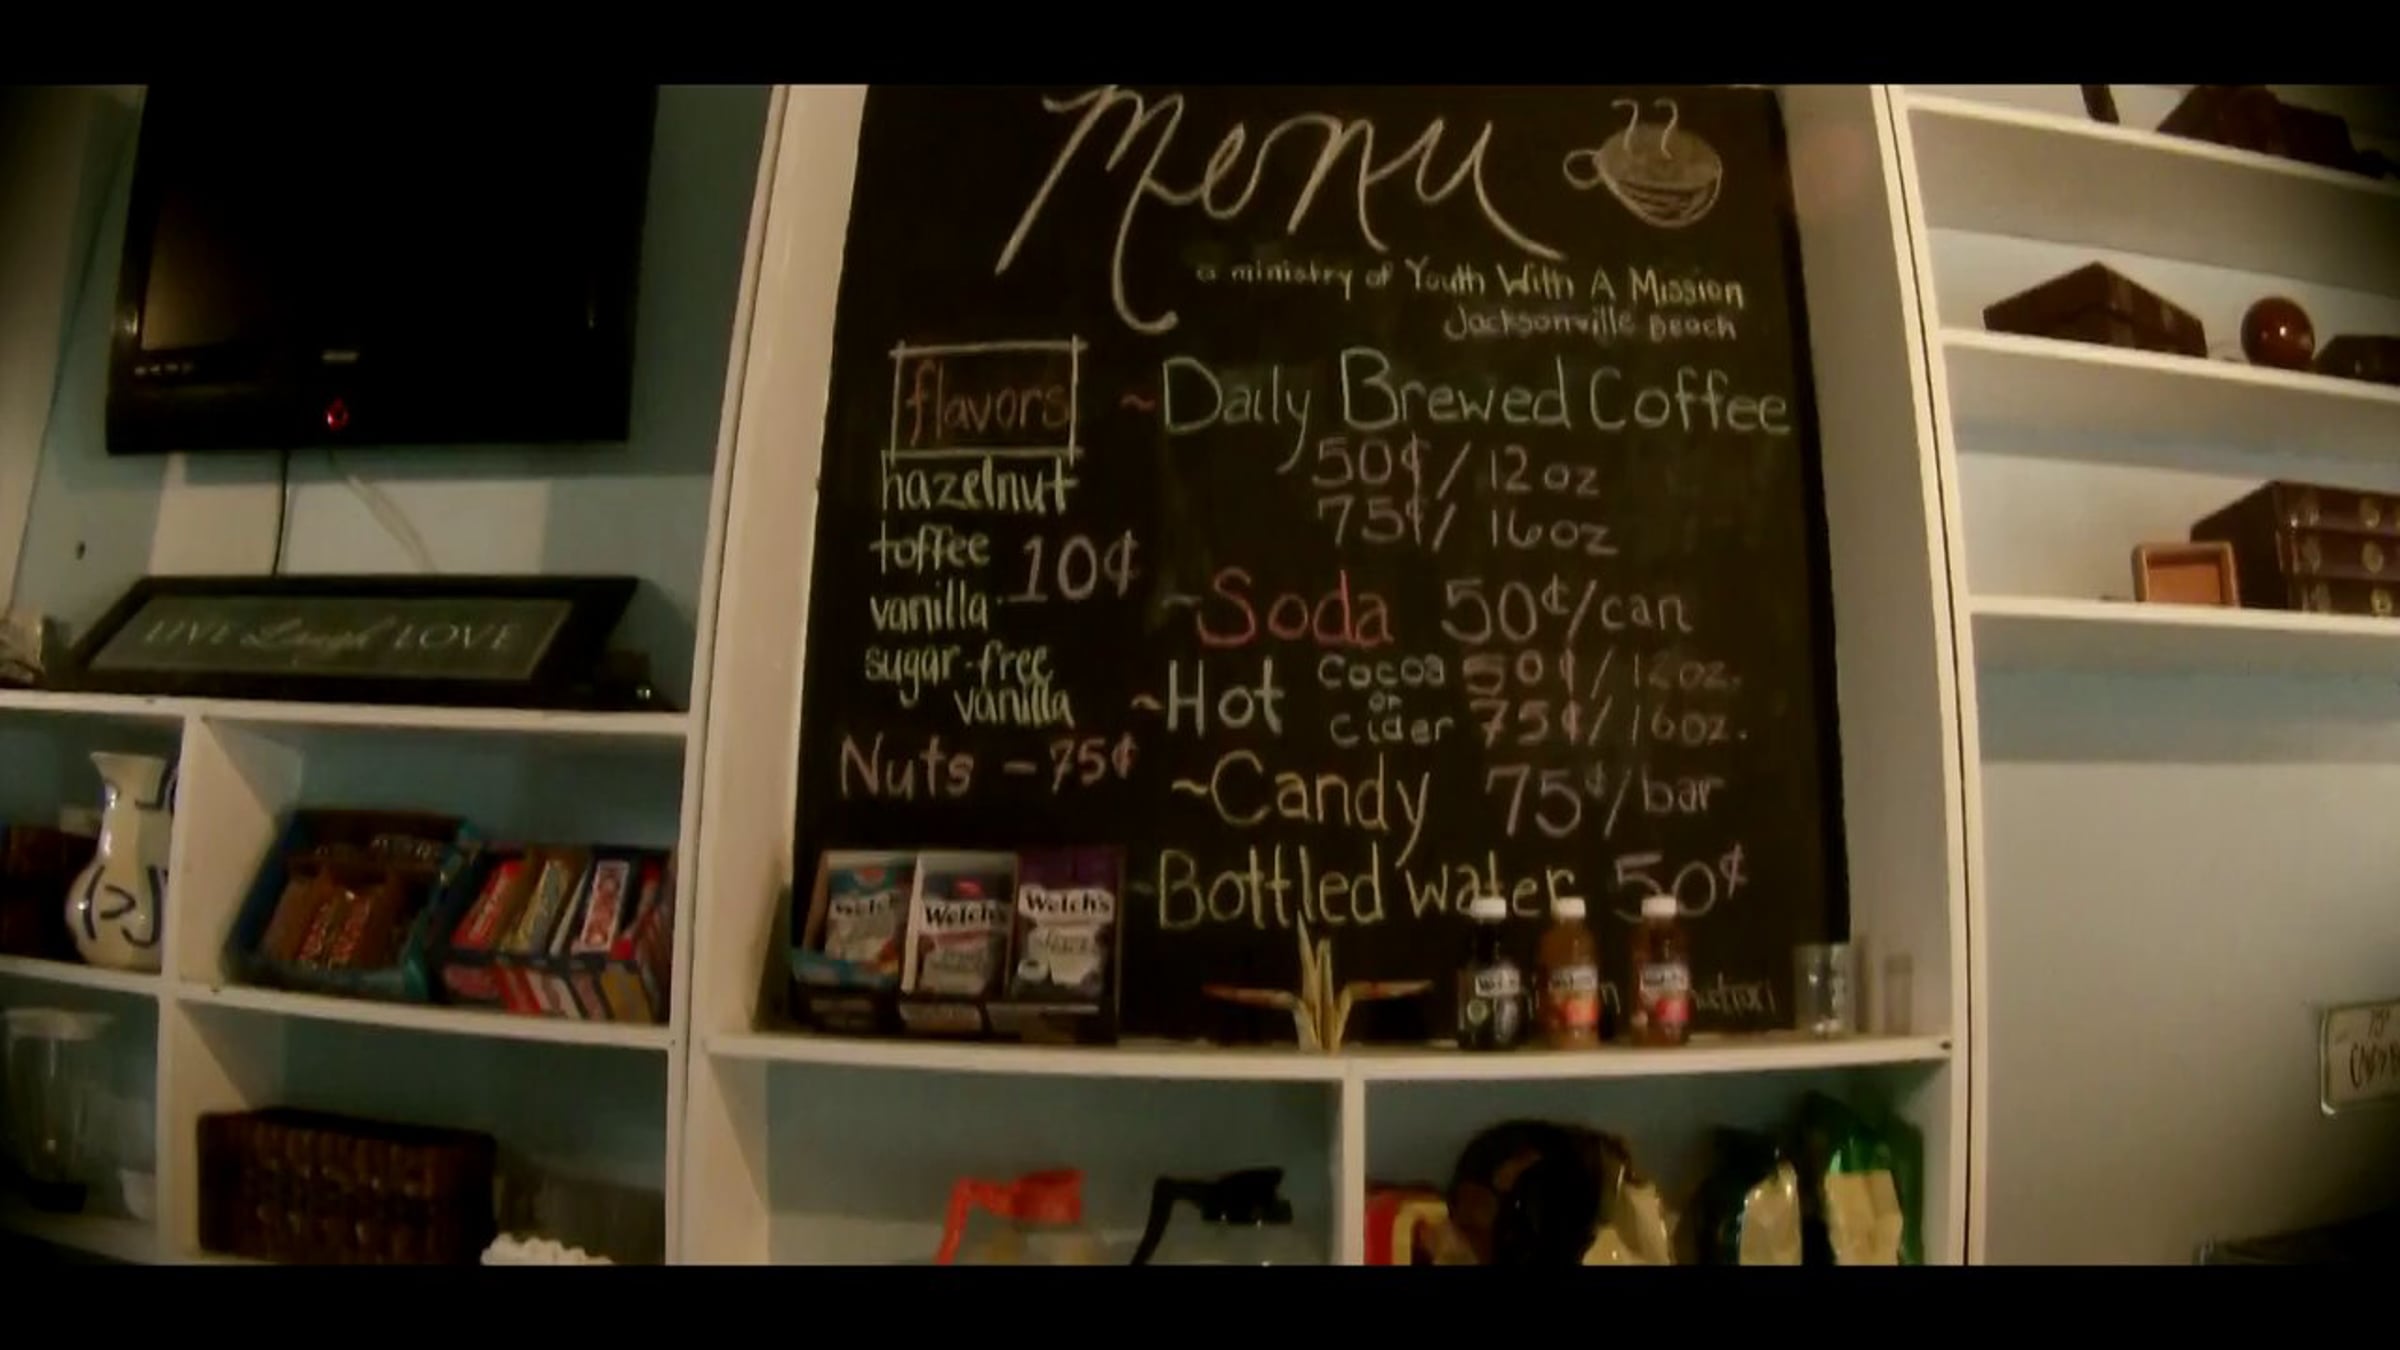 Menu
a ministry of Youth With A Mission
Jacksonville Beach
flavors
hazelnut
toffee
vanilla
sugar-free
vanilla
10¢
Nuts - 75¢
~Daily Brewed Coffee
50¢/ 12 oz
75¢/ 16 oz
~Soda 50¢/can
~Hot Cocoa or Cider
50¢/ 12oz.
75¢/ 16oz.
~Candy 75¢/bar
~Bottled water 50¢
LIVE Laugh LOVE
Welch's
Welch's
Welch's